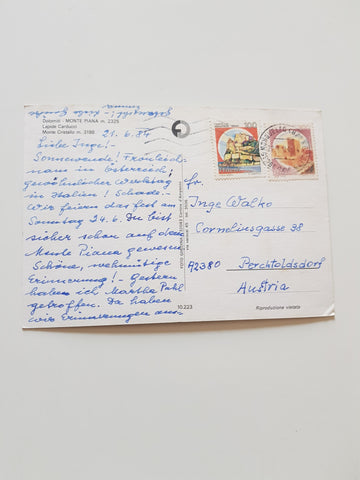 Dolomiti - MONTE PIANA m. 2325
Lapide Carducci
Monte Cristallo m. 3199
21.6.84
Liebe Inge!
Sonnenwende! Fronleich-
nam in Österreich,
gewöhnlicher Werktag
in Italien! Schade.
Wir feiern das Fest am
Sonntag 24.6. Du bist
sicher schon auf dem
Monte Piana gewesen.
Schöne, wehmütige
Erinnerung! - Gestern
haben ich Martha Pahl
getroffen. Da haben
wir Erinnerungen aus-
100
Fr.
Inge Walko
Corneliusgasse 38
A2380 Perchtoldsdorf
Austria
10.223
Riproduzione vietata